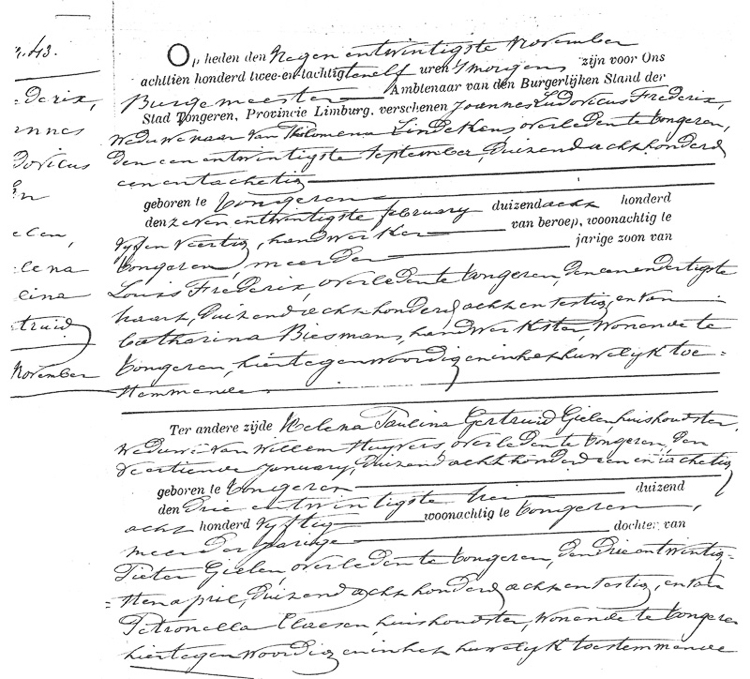 n. 43.
Op heden den Negen entwintigste November
achttien honderd twee-en-tachtig ten elf uren 'smorgens zijn voor Ons
Burgemeester Ambtenaar van den Burgerlijken Stand der
Stad Tongeren, Provincie Limburg, verschenen Joannes Ludovicus Frederix,
Weduwenaar van Philomena Lindekens overleden te tongeren,
den een entwintigste September, duizend acht honderd
een en tachetig
geboren te tongeren
den zeven entwintigste february duizend acht honderd
vyf en veertig, handwerker van beroep, woonachtig te
tongeren, meerder jarige zoon van
Louis Frederix, overleden te tongeren, den een en dertigste
maart, duizend acht honderd acht en sestig, en van
Catharina Biesmans, handwerkster, wonende te
tongeren, hier tegenwoordig en in het huwelijk toe=
stemmende
Ter andere zijde Helena Paulina Gertruid Gielen, huishoudster,
Weduwe van Willem Huyvers, overleden te tongeren, den
veertiende January, duizend acht honderd een en tachetig
geboren te tongeren duizend
den drie entwintigste mei
acht honderd vyftig woonachtig te tongeren,
meerderjarige dochter van
Pieter Gielen overleden te tongeren, den drie entwintig=
=sten april, duizend acht honderd acht en sestig, en van
Petronella Claesen, huishoudster, wonende te tongeren
hier tegenwoordig en in het huwelijk toestemmende
=derix,
=annes
dovicus
En
elen,
elena
lina
truid
November